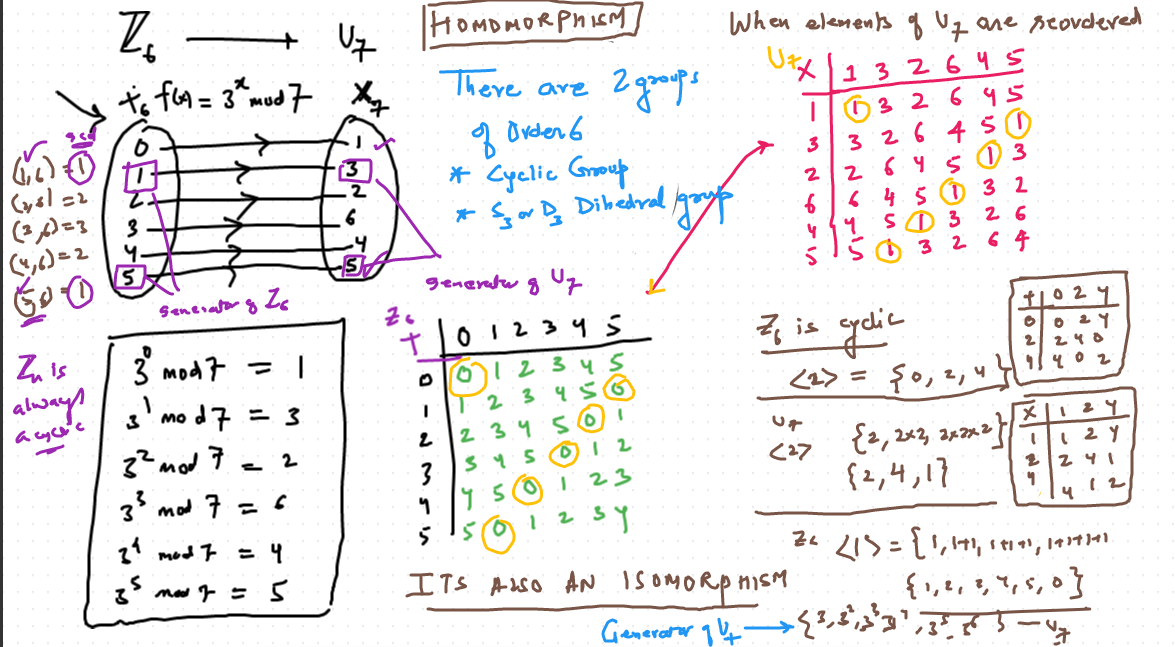 Z₆ → U₇
+₆ f(x) = 3ˣ mod 7 X₇
0 1
1 3
2 2
3 6
4 4
5 5
gcd
(1,6) = 1
= 2
(3,6) = 3
(4,6) = 2
(5,6) = 1
generator of Z₆
generator of U₇
Zₙ is
always
a cyclic
3⁰ mod 7 = 1
3¹ mod 7 = 3
3² mod 7 = 2
3³ mod 7 = 6
3⁴ mod 7 = 4
3⁵ mod 7 = 5
HOMOMORPHISM
There are 2 groups
of Order 6
* Cyclic Group
* S₃ or D₃ Dihedral group
Z₆
+ 0 1 2 3 4 5
0 0 1 2 3 4 5
1 1 2 3 4 5 0
2 2 3 4 5 0 1
3 3 4 5 0 1 2
4 4 5 0 1 2 3
5 5 0 1 2 3 4
ITS ALSO AN ISOMORPHISM
When elements of U₇ are reordered
U₇
X 1 3 2 6 4 5
1 1 3 2 6 4 5
3 3 2 6 4 5 1
2 2 6 4 5 1 3
6 6 4 5 1 3 2
4 4 5 1 3 2 6
5 5 1 3 2 6 4
Z₆ is cyclic
<2> = {0, 2, 4}
+ 0 2 4
0 0 2 4
2 2 4 0
4 4 0 2
U₇
<2> {2, 2×2, 2×2×2}
{2, 4, 1}
X 1 2 4
1 1 2 4
2 2 4 1
4 4 1 2
Z₆ <1> = {1, 1+1, 1+1+1, 1+1+1+1
{1, 2, 3, 4, 5, 0}
Generator of U₇ → {3, 3², 3³ 3⁴, 3⁵, 3⁶ } — U₇